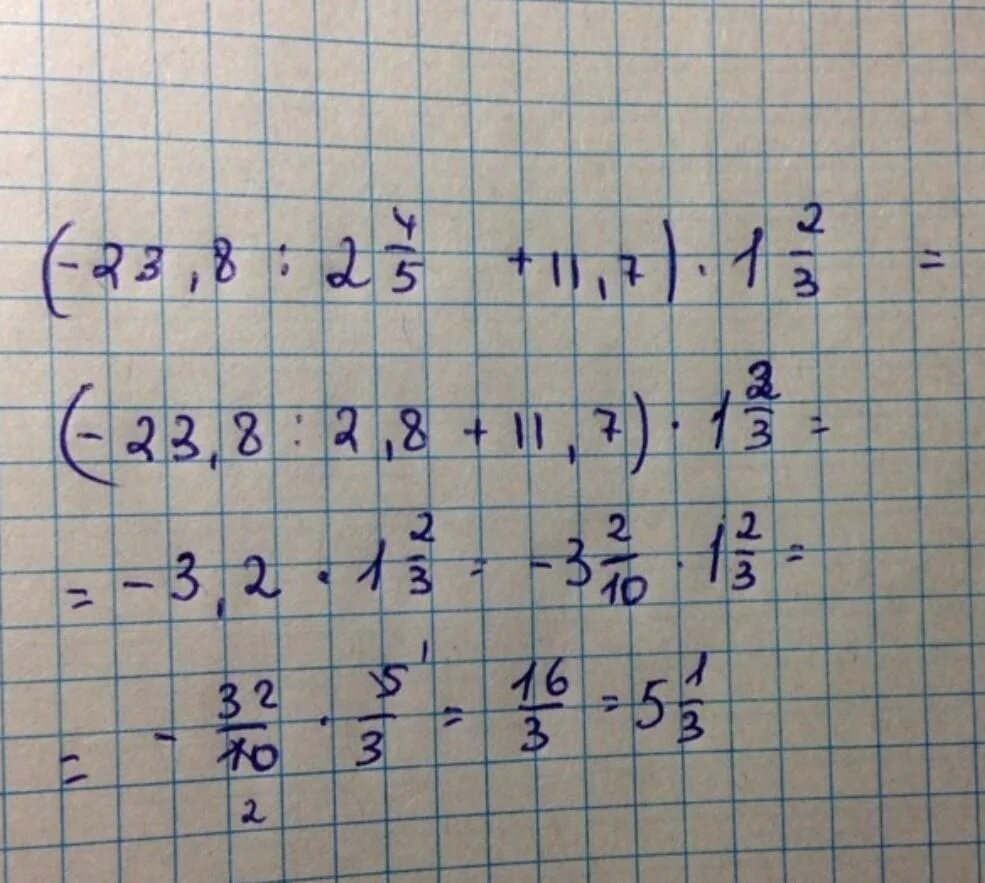 (-23,8 : 2 4/5 + 11,7) · 1 2/3 =
(-23,8 : 2,8 + 11,7) · 1 2/3 =
= -3,2 · 1 2/3 = -3 2/10 · 1 2/3 =
= - 32/10 2 · 5/3 1 = 16/3 = 5 1/3